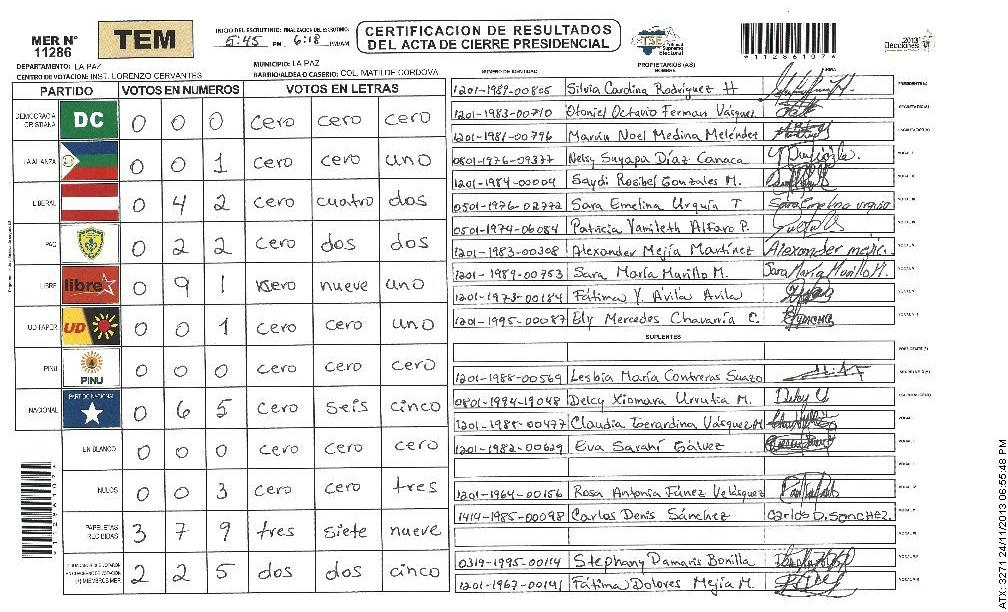 MER N° 11286
TEM
INICIO DEL ESCRUTINIO: 5:45 PM FINALIZACION DEL ESCRUTINIO: 6:18 PM/AM
CERTIFICACION DE RESULTADOS
DEL ACTA DE CIERRE PRESIDENCIAL
TSE Tribunal Supremo Electoral
2013 Elecciones
*11286107*
DEPARTAMENTO: LA PAZ
MUNICIPIO: LA PAZ
CENTRO DE VOTACION: INST. LORENZO CERVANTES
BARRIO/ALDEA O CASERIO: COL. MATILDE CORDOVA
PARTIDO VOTOS EN NUMEROS VOTOS EN LETRAS
DEMOCRACIA CRISTIANA DC 0 0 0 cero cero cero
LA ALIANZA 0 0 1 cero cero uno
LIBERAL 0 4 2 cero cuatro dos
PAC 0 2 2 cero dos dos
LIBRE libre 0 9 1 cero nueve uno
UD FAPER UD 0 0 1 cero cero uno
PINU PINU 0 0 0 cero cero cero
NACIONAL PARTIDO NACIONAL 0 6 5 cero seis cinco
EN BLANCO 0 0 0 cero cero cero
NULOS 0 0 3 cero cero tres
PAPELETAS RECIBIDAS 3 7 9 tres siete nueve
CIUDADANOS QUE VOTARON EN CUADERNO DE VOTACION (+) MIEMBROS MER 2 2 5 dos dos cinco
PROPIETARIOS (AS)
NUMERO DE IDENTIDAD NOMBRE FIRMA
1201-1989-00805 Silvia Carolina Rodriguez H
1201-1983-00710 Otoniel Octavio Ferman Vásquez
1201-1981-00796 Marvin Noel Medina Meléndez
0801-1976-09377 Nelsy Suyapa Díaz Canaca
1201-1984-00004 Saydi Rosibel Gonzales M.
0501-1976-02772 Sara Emelina Urquía T Sara Emelina urquia
0501-1974-06084 Patricia Yanileth Alfaro P.
1201-1983-00308 Alexander Mejía Martínez Alexander mejí.
1201-1989-00753 Sara María Murillo M. Sara María Murillo M.
1201-1973-00184 Fátima Y. Ávila Avila
1201-1995-00087 Ely Mercedes Chavarría C.
SUPLENTES
1201-1988-00569 Lesbia María Contreras Suazo
0801-1994-19048 Delcy Xiomara Urrutia M. Delcy U
1201-1988-00477 Claudia Gerardina Vásquez M
1201-1982-00629 Eva Sarahí Gálvez
1201-1964-00156 Rosa Antonia Fúnez Velásquez
1414-1985-00098 Carlos Denis Sánchez Carlos D. Sanchez.
0319-1995-00114 Stephany Damaris Bonilla
1201-1967-00141 Fátima Dolores Mejía M.
*11286107*
ATX 3271 24/11/2013 06:55:48 PM